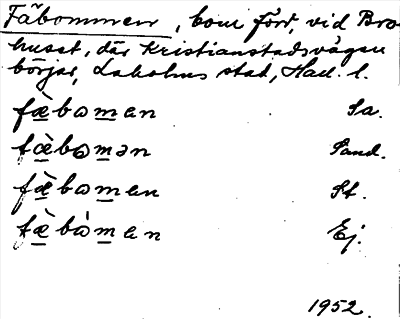 Fäbommen, bom förr, vid Bro-
huset, där Kristianstadsvägen
börjar, Laholms stad, Hall. l.
fæ̀bomen Sa.
fæ̀bomən Sand.
fæ̀bomen St.
fæ̀bòmen Ej.
1952.